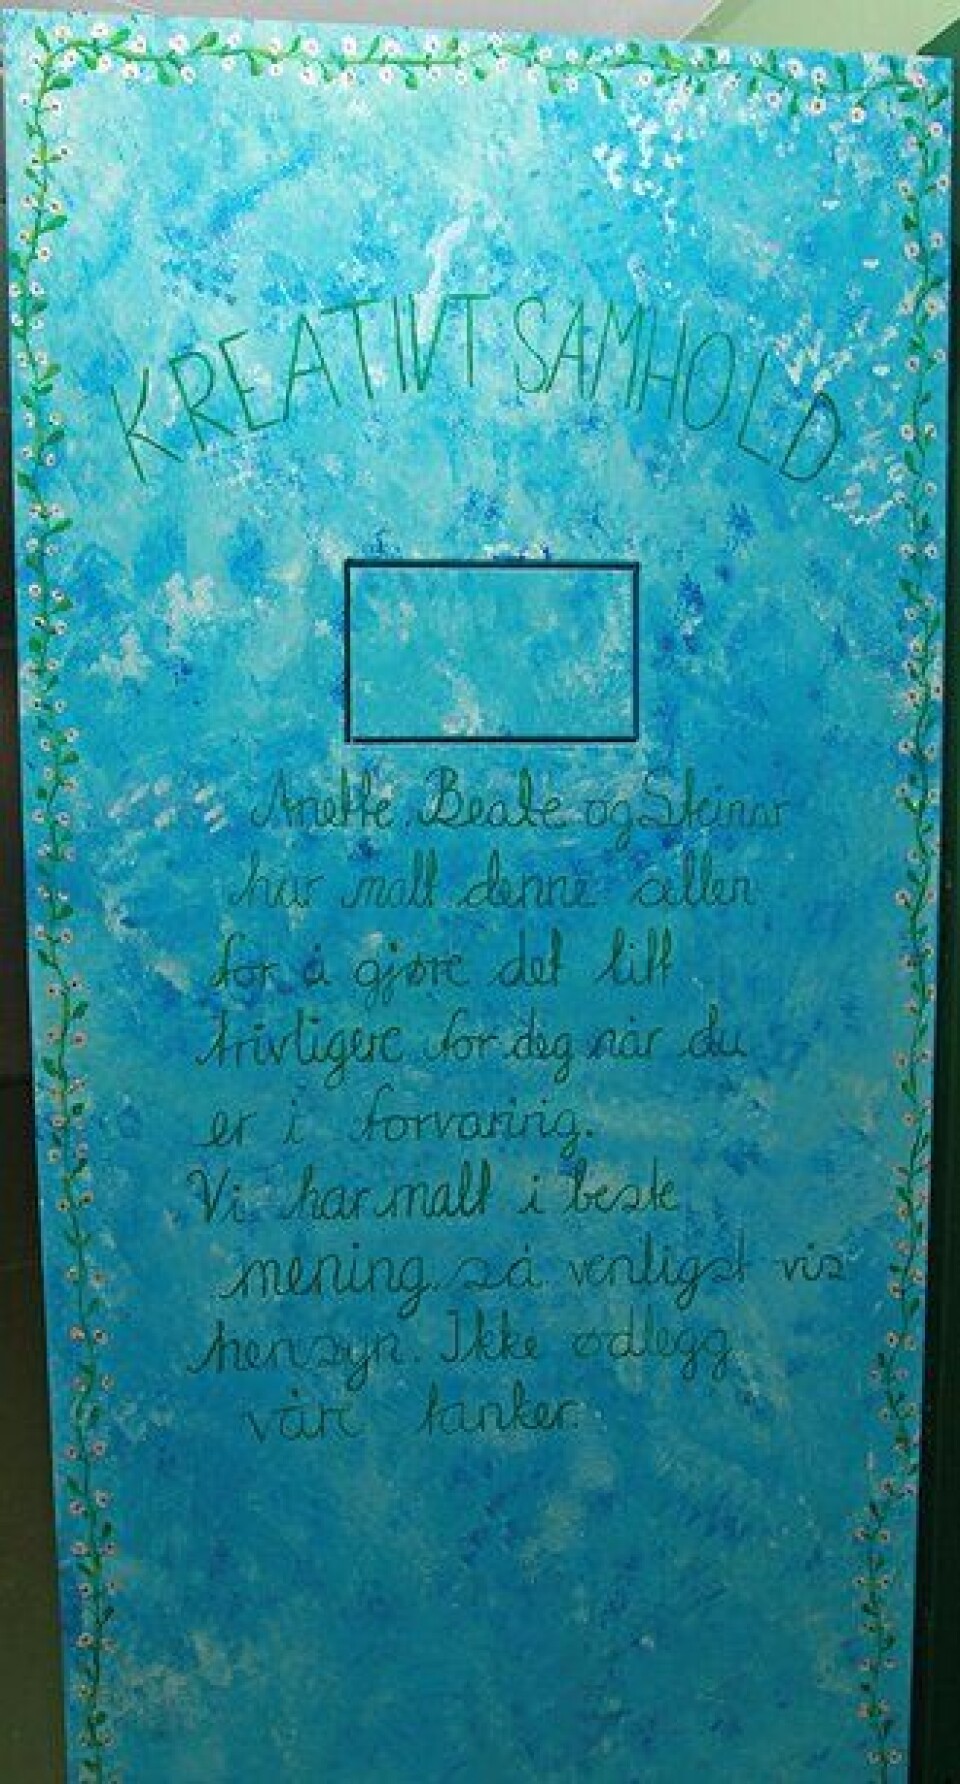 KREATIVT SAMHOLD
Anette, Beate og Steinar
har malt denne cellen
for å gjøre det litt
trivligere for deg når du
er i forvaring.
Vi har malt i beste
mening så venligst vis
hensyn. Ikke ødlegg
våre tanker.